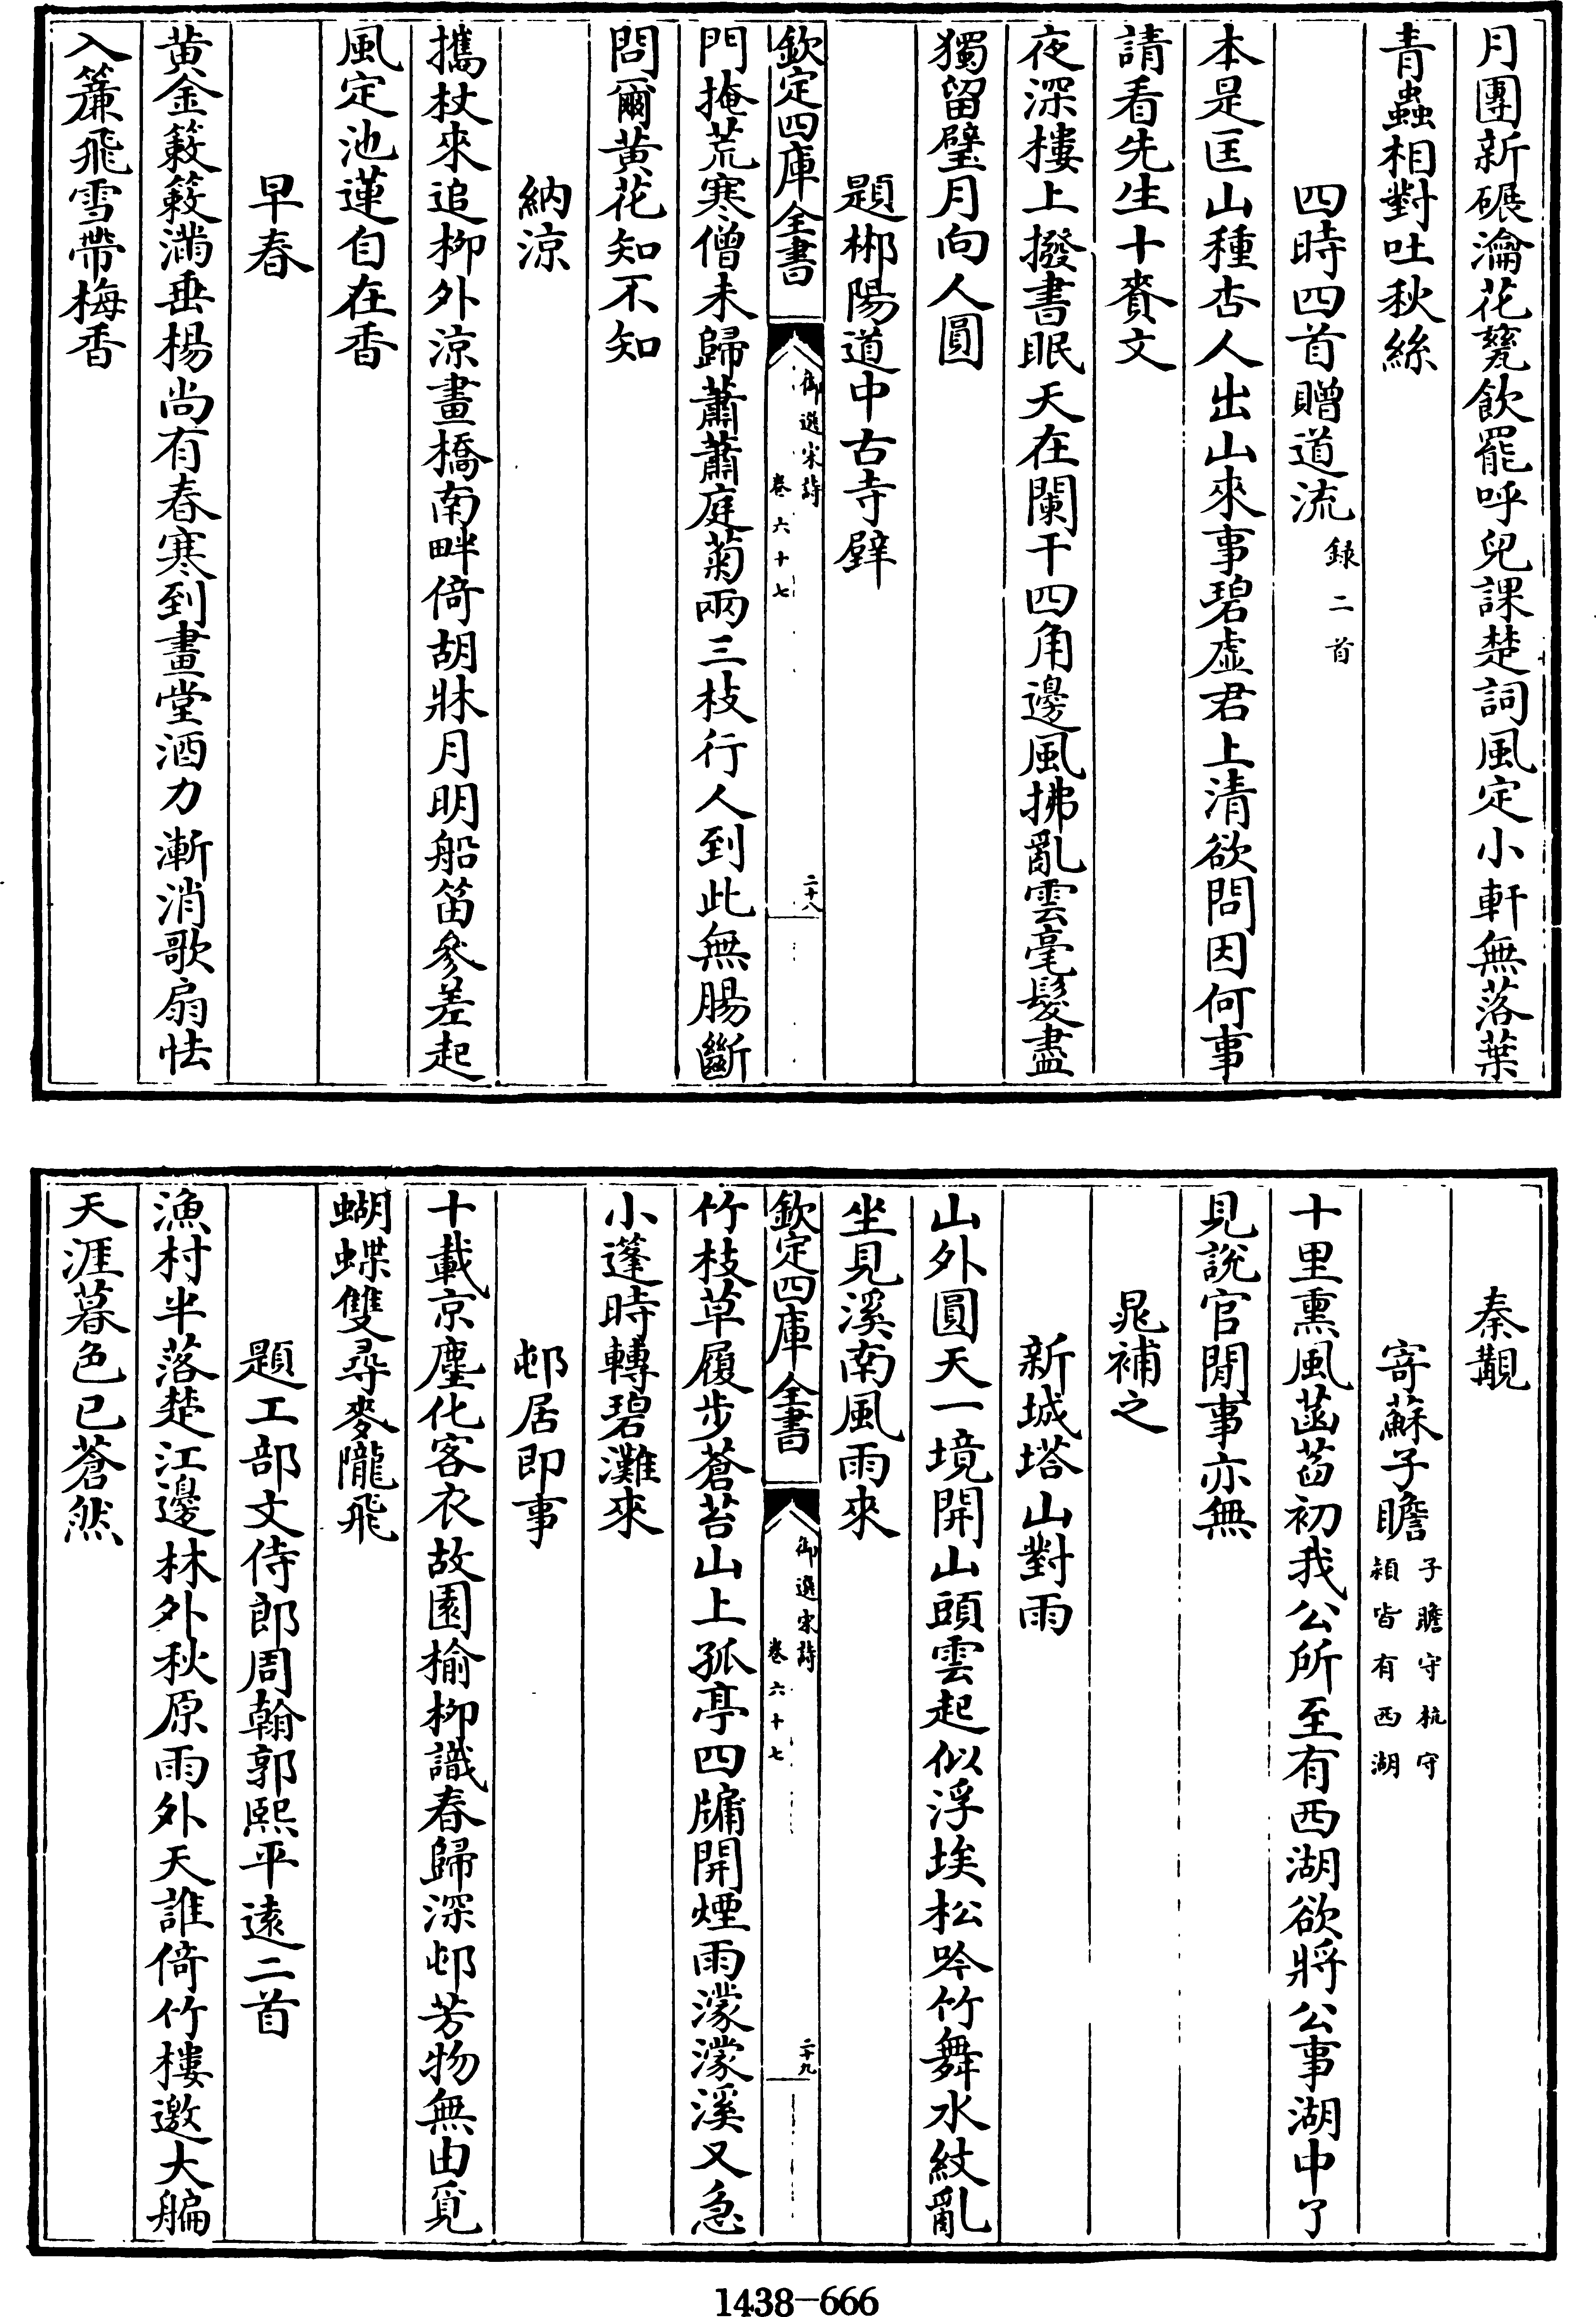 月團新碾瀹花甆飲罷呼兒課楚詞風定小軒無落葉
青蟲相對吐秋絲
四時四首贈道流錄二首
本是匡山種杏人出山來事碧虛君上清欲問因何事
請看先生十賚文
夜深樓上撥書眠天在闌干四角邊風拂亂雲毫髮盡
獨留璧月向人圓
題郴陽道中古寺壁
欽定四庫全書
御選宋詩
卷六十七
二十八
門掩荒寒僧未歸蕭蕭庭菊兩三枝行人到此無腸斷
問爾黃花知不知
納涼
攜杖來追柳外涼畫橋南畔倚胡牀月明船笛參差起
風定池蓮自在香
早春
黃金籔籔滿垂楊尚有春寒到畫堂酒力漸消歌扇怯
入簾飛雪帶梅香
秦觀
寄蘇子瞻子瞻守杭守
潁皆有西湖
十里熏風菡萏初我公所至有西湖欲將公事湖中了
見說官閒事亦無
晁補之
新城塔山對雨
山外圓天一境開山頭雲起似浮埃松吟竹舞水紋亂
坐見溪南風雨來
欽定四庫全書
御選宋詩
卷六十七
二十九
竹枝草履步蒼苔山上孤亭四牖開煙雨濛濛溪又急
小蓬時轉碧灘來
邨居即事
十載京塵化客衣故園榆柳識春歸深邨芳物無由覓
蝴蝶雙尋麥隴飛
題工部文侍郎周翰郭熙平遠二首
漁村半落楚江邊林外秋原雨外天誰倚竹樓邀大艑
天涯暮色已蒼然
1438-666